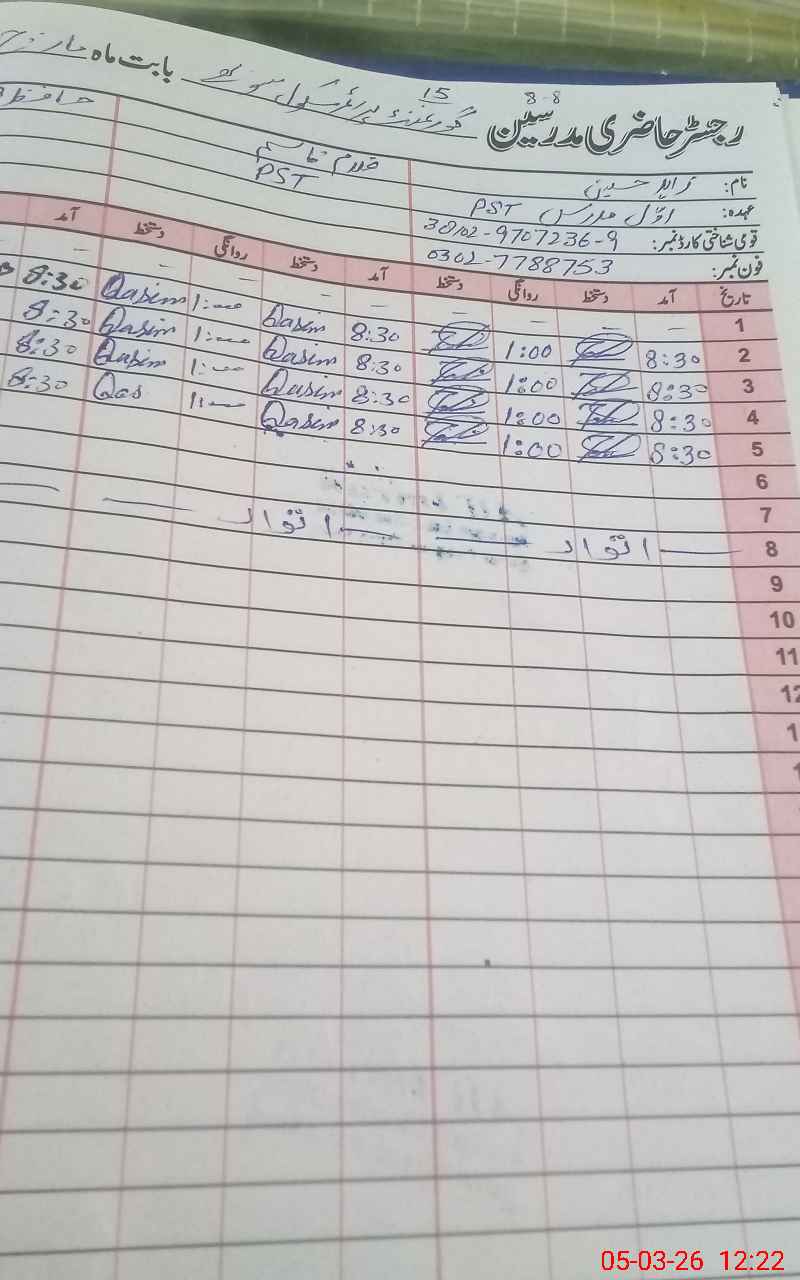 رجسٹر حاضری مدرسین گورنمنٹ پرائمری سکول بابت ماہ مارچ
15
8-8
نام: زاہد حسین غلام قاسم حافظ
عہدہ: اوّل مدرس PST PST
قومی شناختی کارڈ نمبر: 38102-9707236-9
فون نمبر: 0302-7788753
تاریخ آمد دستخط روانگی دستخط آمد دستخط روانگی دستخط آمد
1 – – – – – – – –
2 8:30 1:00 8:30 Qasim 1:00 Qasim 8:30
3 8:30 1:00 8:30 Qasim 1:00 Qasim 8:30
4 8:30 1:00 8:30 Qasim 1:00 Qasim 8:30
5 8:30 1:00 8:30 Qasim 1:00 Qas 8:30
6
7
8 اتوار اتوار
9
10
11
12
1
1
05-03-26 12:22